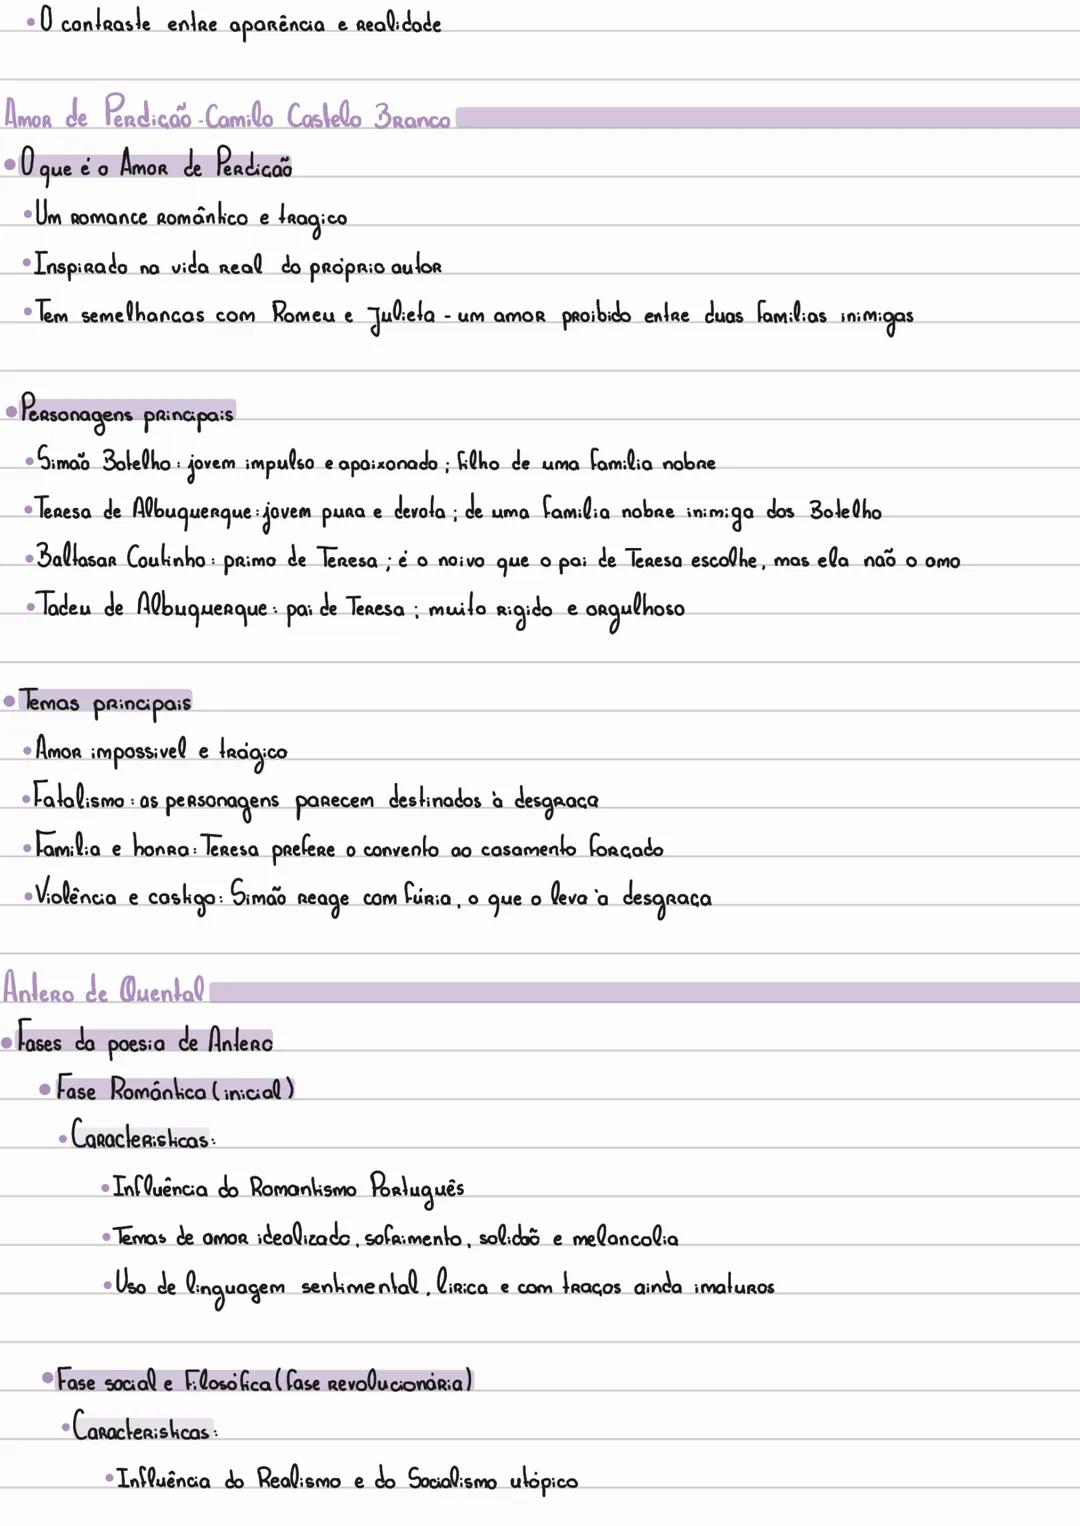 • O contraste entre aparência e realidade
Amor de Perdição - Camilo Castelo Branco
• O que é o Amor de Perdicaõ
• Um romance romântico e tragico
• Inspirado na vida real do próprio autor
• Tem semelhancas com Romeu e Julieta - um amor proibido entre duas familias inimigas
• Personagens principais
• Simaõ Botelho: jovem impulso e apaixonado; filho de uma familia nobre
• Teresa de Albuquerque: jovem pura e devota; de uma familia nobre inimiga dos Botelho
• Baltasar Coutinho: primo de Teresa; é o noivo que o pai de Teresa escolhe, mas ela naõ o ama
• Tadeu de Albuquerque: pai de Teresa; muito rigido e orgulhoso
• Temas principais
• Amor impossivel e trágico
• Fatalismo: as personagens parecem destinados à desgraca
• Familia e honra: Teresa prefere o convento ao casamento forçado
• Violência e castigo: Simaõ reage com fúria, o que o leva à desgraça
Antero de Quental
• Fases da poesia de Antero
• Fase Romântica (inicial)
• Caracteristicas:
• Influência do Romantismo Português
• Temas de amor idealizado, sofrimento, solidaõ e melancolia
• Uso de linguagem sentimental, lirica e com traços ainda imaturos
• Fase social e Filosófica (fase revolucionária)
• Caracteristicas:
• Influência do Realismo e do Socialismo utópico